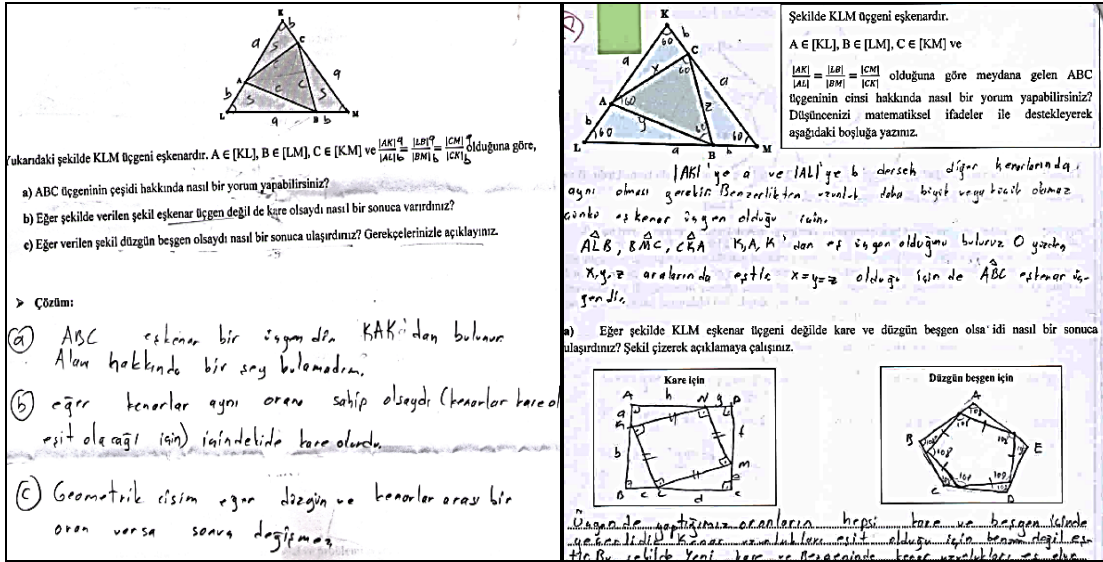 K
b
a
s
C
A
s
a
c
c
b
s
s
L
a
B
b
M
Yukarıdaki şekilde KLM üçgeni eşkenardır. A ∈ [KL], B ∈ [LM], C ∈ [KM] ve |AK| a / |AL| b = |LB| a / |BM| b = |CM| a / |CK| b olduğuna göre,
a) ABC üçgeninin çeşidi hakkında nasıl bir yorum yapabilirsiniz?
b) Eğer şekilde verilen şekil eşkenar üçgen değil de kare olsaydı nasıl bir sonuca varırdınız?
c) Eğer verilen şekil düzgün beşgen olsaydı nasıl bir sonuca ulaşırdınız? Gerekçelerinizle açıklayınız.
➤ Çözüm:
a ABC eşkenar bir üçgendir KAK'dan bulunur.
Alan hakkında bir şey bulamadım.
b eğer kenarlar aynı orana sahip olsaydı (kenarlar kare ol
eşit olacağı için) içindekide kare olurdu.
c Geometrik cisim eğer düzgün ve kenarlar arası bir
oran varsa sonuç değişmez
K
60
b
a
C
x
60
a
A
60
z
b
y
60
60
60
L
a
B
b
M
Şekilde KLM üçgeni eşkenardır.
A ∈ [KL], B ∈ [LM], C ∈ [KM] ve
|AK| / |AL| = |LB| / |BM| = |CM| / |CK| olduğuna göre meydana gelen ABC
üçgeninin cinsi hakkında nasıl bir yorum yapabilirsiniz?
Düşüncenizi matematiksel ifadeler ile destekleyerek
aşağıdaki boşluğa yazınız.
|AK|'ye a ve |AL|'ye b dersek diğer kenarlarında
aynı olması gerekir Benzerlikten uzunluk daha büyük veya küçük olamaz
çünkü eşkenar üçgen olduğu için.
ALB, BMC, CKA K,A,K'dan eş üçgen olduğunu buluruz O yüzden
x,y,z aralarında eştir x=y=z olduğu için de ABC eşkenar üç-
gendir.
a) Eğer şekilde KLM eşkenar üçgeni değilde kare ve düzgün beşgen olsa idi nasıl bir sonuca
ulaşırdınız? Şekil çizerek açıklamaya çalışınız.
Kare için
A
h
N
g
D
a
K
f
b
M
e
B
c
L
d
C
Düzgün beşgen için
A
108
108
B
108
108
108
E
108
108
C
D
Üçgende yaptığımız oranların hepsi kare ve beşgen içinde
geçerlidir Kenar uzunlukları eşit olduğu için benzer değil eş-
tir Bu şekilde Yeni kare ve Beşgeninde kenar uzunlukları eş